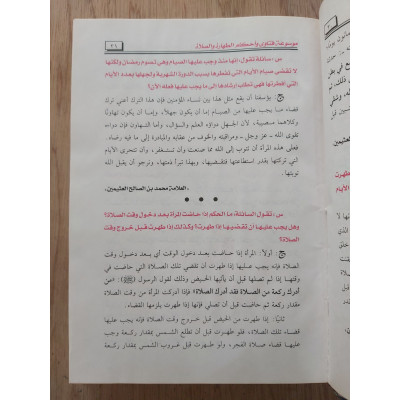 موسوعة فتاوى وأحكام الطهارة والصلاة
٣٦
س ـ سائلة تقول: إنها منذ وجب عليها الصيام وهي تصوم رمضان ولكنها
لا تقضي صيام الأيام التي تفطرها بسبب الدورة الشهرية ولجهلها بعدد الأيام
التي أفطرتها فهي تطلب إرشادها إلى ما يجب عليها فعله الآن؟
ج: يؤسفنا أن يقع مثل هذا بين نساء المؤمنين فإن هذا الترك أعني ترك
قضاء ما يجب عليها من الصيام إما أن يكون جهلاً، وإما أن يكون تهاونًا
وكلاهما مصيبة، لأن الجهل دواؤه العلم والسؤال، وأما التهاون فإن دواءه
تقوى الله ـ عز وجل ـ ومراقبته والخوف من عقابه والمبادرة إلى ما فيه رضاه.
فعلى هذه المرأة أن تتوب إلى الله مما صنعت وأن تستغفر، وأن تتحرى الأيام
التي تركتها بقدر استطاعتها فتقضيها، وبهذا تبرأ ذمتها، ونرجو أن يقبل الله
توبتها.
«العلامة محمد بن الصالح العثيمين»
● ● ●
س ـ تقول السائلة: ما الحكم إذا حاضت المرأة بعد دخول وقت الصلاة؟
وهل يجب عليها أن تقضيها إذا طهرت؟ وكذلك إذا طهرت قبل خروج وقت
الصلاة؟
ج: أولاً: المرأة إذا حاضت بعد دخول الوقت أي بعد دخول وقت
الصلاة فإنه يجب عليها إذا طهرت أن تقضي تلك الصلاة التي حاضت في
وقتها إذا لم تصلها قبل أن يأتيها الحيض وذلك لقول الرسول (ﷺ): «من
أدرك ركعة من الصلاة فقد أدرك الصلاة» فإذا أدركت المرأة من وقت الصلاة
مقدار ركعة ثم حاضت قبل أن تصلي فإنها إذا طهرت يلزمها القضاء.
ثانيًا: إذا طهرت من الحيض قبل خروج وقت الصلاة فإنه يجب عليها
قضاء تلك الصلاة، فلو طهرت قبل أن تطلع الشمس بمقدار ركعة وجب
عليها قضاء صلاة الفجر، ولو طهرت قبل غروب الشمس بمقدار ركعة